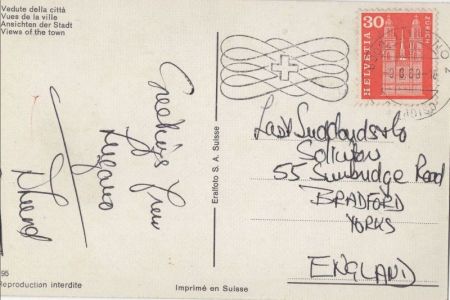 Vedute della città
Vues de la ville
Ansichten der Stadt
Views of the town
Greetings from
Lugano
Eralfoto S. A. Suisse
95
Reproduction interdite
Imprimé en Suisse
HELVETIA
30
ZÜRICH
Last Suddards & Co
Solicitors
55 Sunbridge Road
BRADFORD
YORKS
ENGLAND